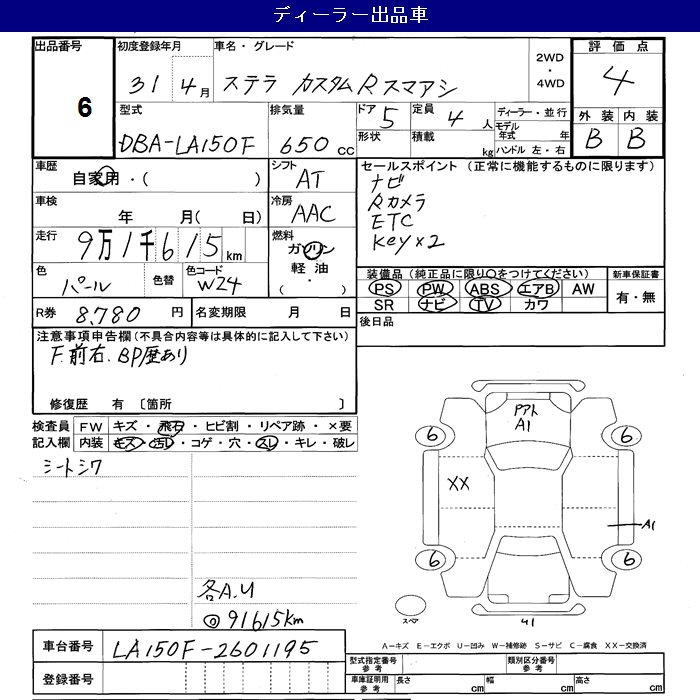 ディーラー出品車
出品番号 6
初度登録年月 31 4月
車名・グレード ステラ カスタムRスマアシ
2WD・4WD
評価点 4
外装 B 内装 B
型式 DBA-LA150F
排気量 650cc
ドア 5 定員 4人
形状 積載 kg
ディーラー・並行
モデル年式 年
ハンドル 左・右
車歴 自家用・( )
シフト AT
セールスポイント (正常に機能するものに限ります)
ナビ
Rカメラ
ETC
Key×2
車検 年 月( 日)
冷房 AAC
走行 9万1千615km
燃料 ガソリン
軽油
( ・ )
色 パール 色替 色コード W24
装備品(純正品に限り○をつけてください) 新車保証書
PS PW ABS エアB AW 有・無
SR ナビ TV カワ
R券 8,780円 名変期限 月 日
後日品
注意事項申告欄(不具合内容等は具体的に記入して下さい)
F.前右.BP歴あり
修復歴 有 〔箇所 〕
検査員記入欄 FW キズ・飛石・ヒビ割・リペア跡・×要
内装 キズ・汚れ・コゲ・穴・スレ・キレ・破レ
シートシワ
各A.U
◎91615km
PアトA1
6 6
XX
A1
6 6
スペア
U1
A−キズ E−エクボ U−凹み W−補修跡 S−サビ C−腐食 XX−交換済
車台番号 LA150F-2601195
登録番号
型式指定番号参考 類別区分番号参考
車庫証明用参考 長さ cm 幅 cm 高さ cm